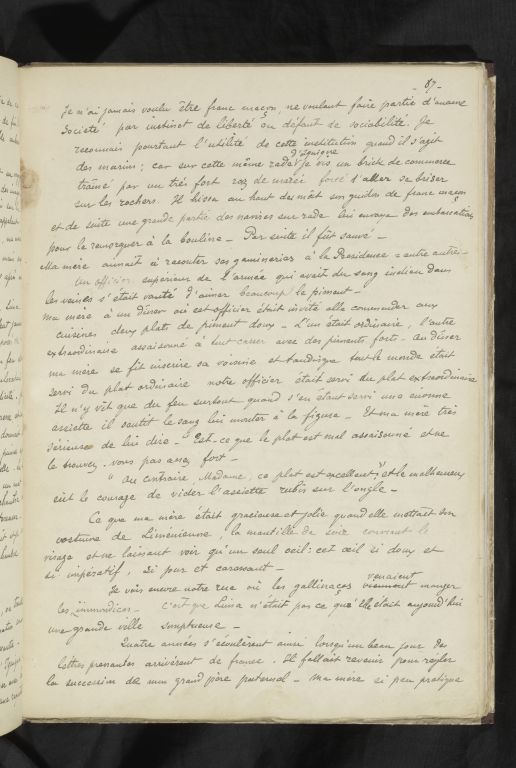 - 67 -
Je n'ai jamais voulu être franc maçon, ne voulant faire partie d'aucune
Société par instinct de liberté ou défaut de sociabilité. Je
reconnais pourtant l'utilité de cette institution quand il s'agit
des marins; car sur cette même rade d'Iquique je vis un brick de commerce
trainé par un très fort raz de marée forcé d'aller se briser
sur les rochers. Il hissa au haut des mât son guidon de franc maçon
et de suite une grande partie des navires sur rade lui envoya des embarcations
pour le remorquer à la bouline - Par suite il fût sauvé -
Ma mère aimait à raconter ses gamineries à la Résidence - entre autre -
Un officier supérieur de l'armée qui avait du sang indien dans
les veines s'était vanté d'aimer beaucoup le piment -
Ma mère à un diner où cet officier était invité alla commander aux
cuisines deux plats de piment doux - L'un était ordinaire, l'autre
extraordinaire assaisonné à tout casser avec des piments forts - Au diner
ma mère se fit inscrire sa voisine et tandisque tout le monde était
servi du plat ordinaire notre officier était servi du plat extraordinaire
Il n'y vit que du feu surtout quand s'en étant servi une énorme
assiette il sentit le sang lui monter à la figure - Et ma mère très
sérieuse de lui dire - "Est-ce que le plat est mal assaisonné et ne
le trouvez-vous pas assez fort -
" Au contraire, Madame, ce plat est excellent" et le malheureux
eût le courage de vider l'assiette rubis sur l'ongle -
Ce que ma mère était gracieuse et jolie quand elle mettait son
costume de Liménienne, la mantille de soie couvrant le
visage et ne laissant voir qu'un seul œil: cet œil si doux et
si impératif, si pur et caressant -
Je vois encore notre rue où les gallinaços venaient manger
les immondices - C'est que Lima n'était pas ce qu'elle était aujourd'hui
une grande ville somptueuse -
Quatre années s'écoulèrent ainsi lorsqu'un beau jour des
lettres pressantes arrivèrent de france. Il fallait revenir pour régler
la succession de mon grand père paternel - Ma mère si peu pratique